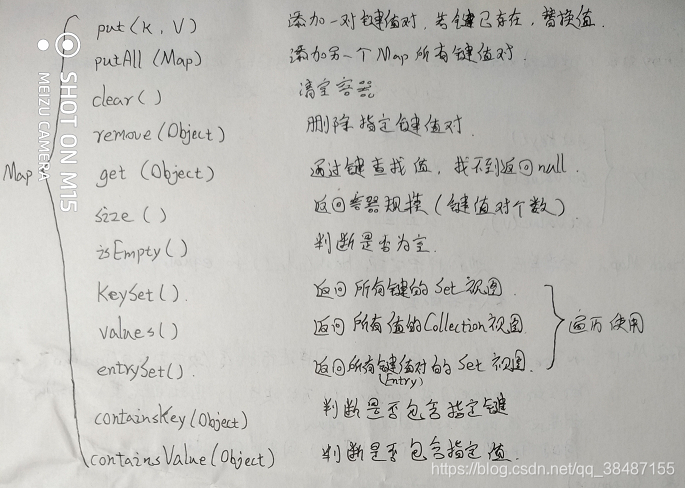 put(K, V) 添加一对键值对，若键已存在，替换值.
putAll (Map) 添加另一个Map所有键值对.
clear() 清空容器
remove (Object) 删除指定键值对.
Map get (Object) 通过键查找值，找不到返回null.
size () 返回容器规模(键值对个数)
isEmpty() 判断是否为空.
KeySet(). 返回所有键的Set视图.
values() 返回所有值的Collection视图 遍历使用
entrySet(). 返回所有键值对的的Set视图.
(Entry)
containsKey(Object) 判断是否包含指定键
containsValue(Object) 判断是否包含指定值.
SHOT ON M15
MEIZU CAMERA
https://blog.csdn.net/qq_38487155